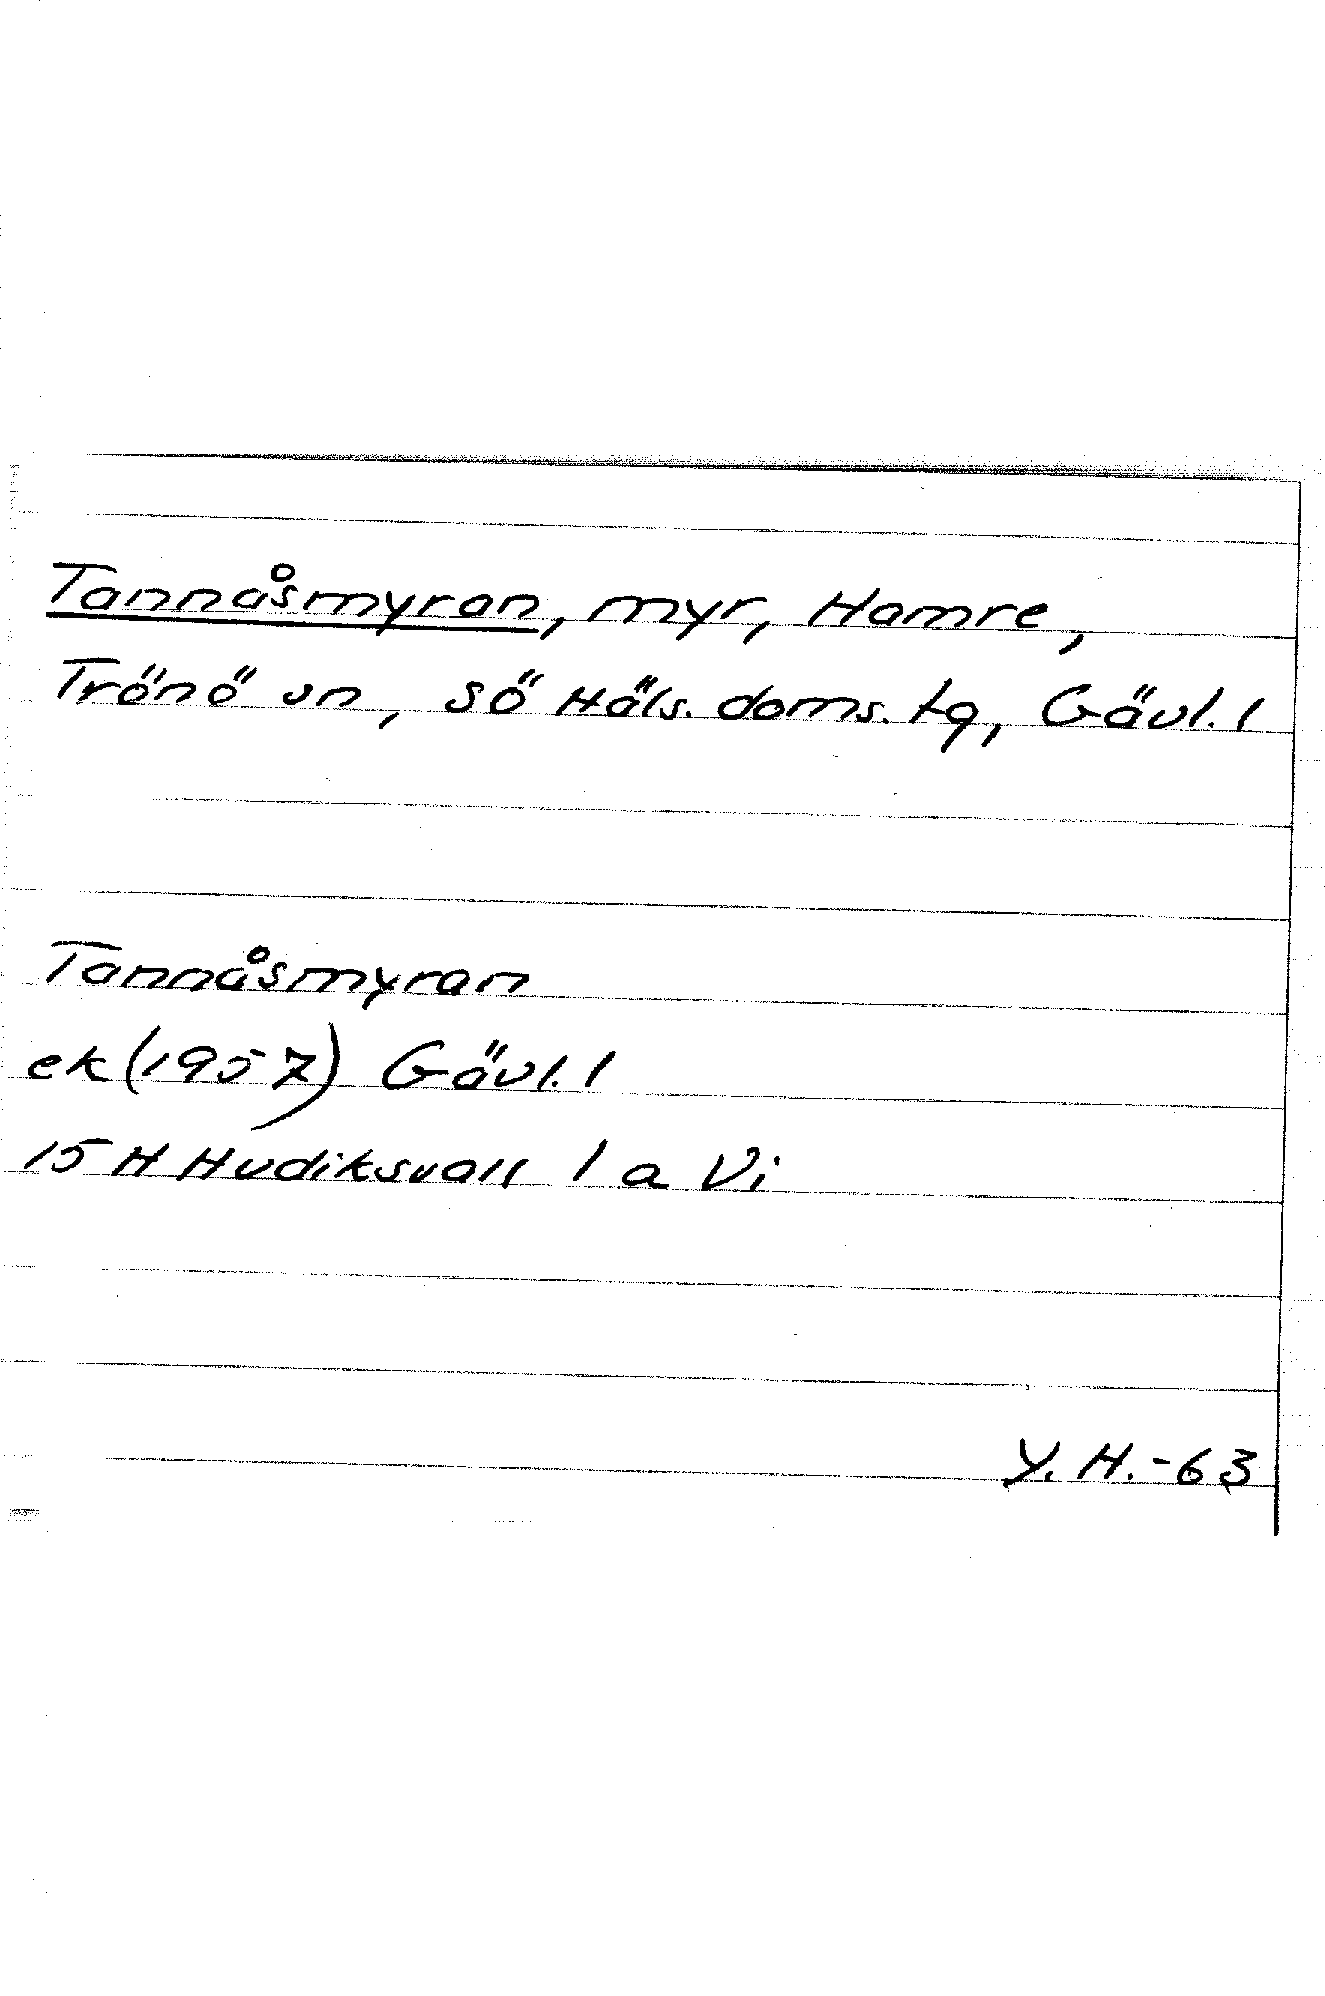 Tannåsmyran, myr, Hamre,
Trönö sn, sö Häls. doms. tg, Gävl. l
Tannåsmyran
ek (1957) Gävl. l
15 H Hudiksvall 1 a Vi
Y. H. -63